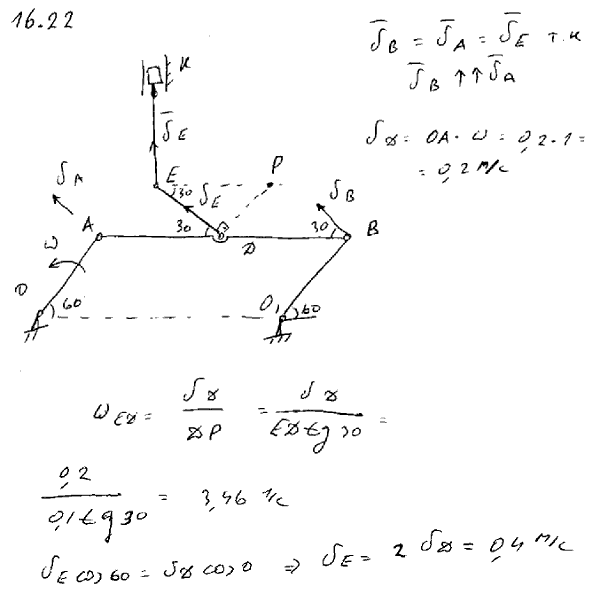 16.22
ῡ_B = ῡ_A = ῡ_E т.к
ῡ_B ↑↑ ῡ_A
υ_D = OA · ω = 0,2 · 1 =
= 0,2 м/с
K
υ_E
E 30 υ_E P
υ_A υ_B
A 30 D 30 B
ω
O 60 O₁ 60
ω_ED = υ_D / DP = υ_D / ED tg 30 =
0,2 / 0,1 tg 30 = 3,46 1/с
υ_E cos 60 = υ_D cos 0 ⇒ υ_E = 2 υ_D = 0,4 м/с